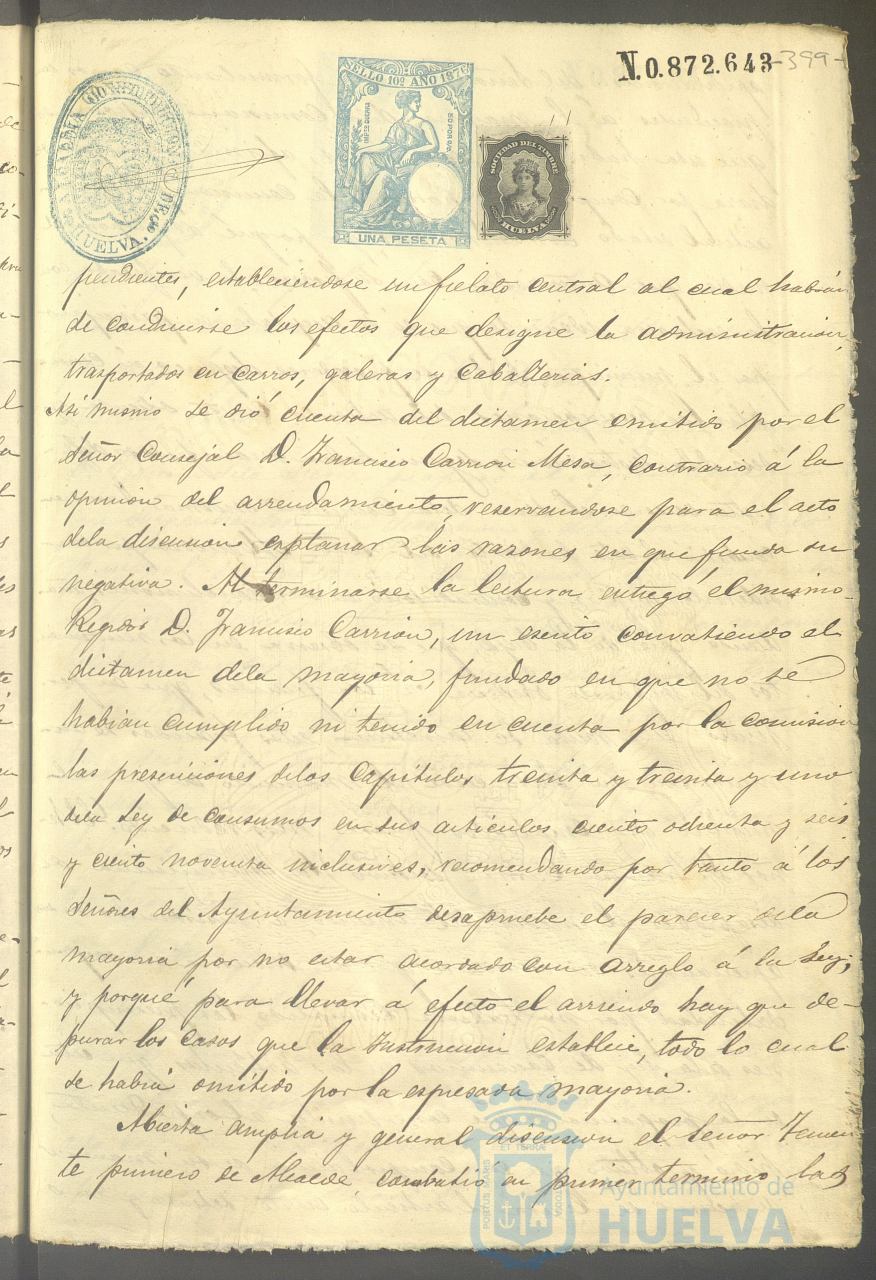 N.0.872.643
-399-
SELLO 10º AÑO 1876
IMPTO GUERRA
50 POR 0/0
UNA PESETA
SOCIEDAD DEL TIMBRE
HUELVA
ALCALDIA CONSTITUCIONAL DE
HUELVA.
pendientes, estableciendose un fielato central al cual habrán
de conducirse los efectos que designe la administracion,
trasportados en carros, galeras y caballerias.
Asi mismo se dió cuenta del dictamen emitido por el
Señor Consejal D. Francisco Carrion Mesa, contrario á la
opinion del arrendamiento, reservandose para el acto
dela discusion esplanar las razones en que funda su
negativa. Al terminarse la lectura entregó el mismo
Regidor D. Francisco Carrion, un escrito convatiendo el
dictamen dela mayoria, fundado en que no se
habian cumplido ni tenido en cuenta por la comision
las presciciones delos capitulos treinta y treinta y uno
dela Ley de consumos en sus articulos ciento ochenta y seis
y ciento noventa inclusives, recomendando por tanto á los
Señores del Ayuntamiento desapruebe el parecer dela
mayoria por no estar acordado con arreglo á la Ley;
y porqué para llevar á efecto el arriendo hay que de-
purar los casos que la Instruccion establece, todo lo cual
se habia omitido por la espresada mayoria.
Abierta amplia y general discusion el Señor Tenien
te primero de Alcalde, combatió en primer termino las
PORTUS MARIS
ET TERRAE
CUSTODIA
Ayuntamiento de
HUELVA